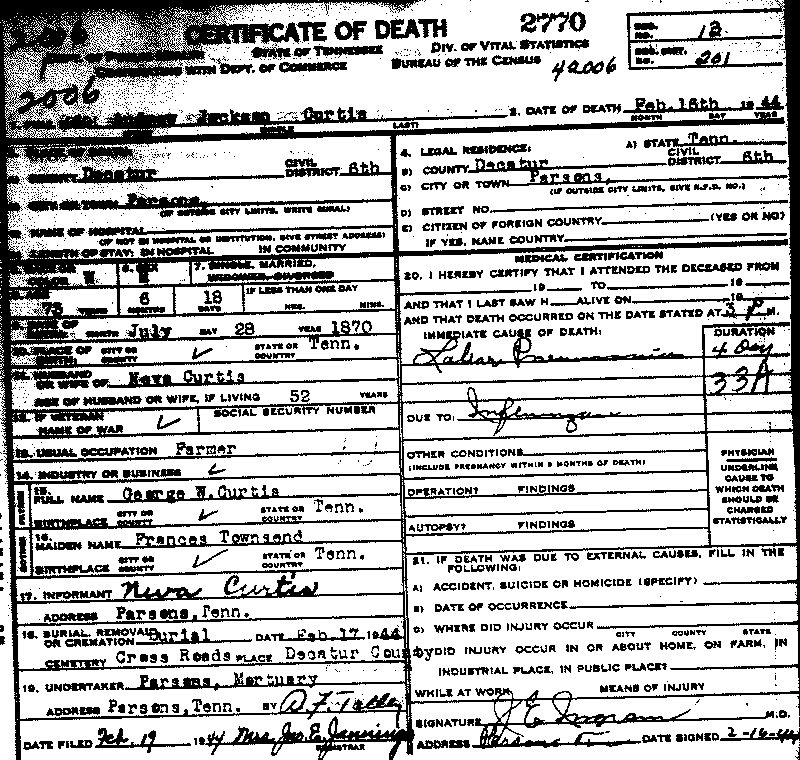 CERTIFICATE OF DEATH 2770
STATE OF TENNESSEE DIV. OF VITAL STATISTICS
COOPERATING WITH DEPT. OF COMMERCE BUREAU OF THE CENSUS
42006
REG. NO. 12
REG. DIST. NO. 201
2006
Jackson Curtis
MIDDLE LAST
2. DATE OF DEATH Feb. 16th 1944
MONTH DAY YEAR
COUNTY Decatur CIVIL DISTRICT 6th
CITY OR TOWN Parsons,
(IF OUTSIDE CITY LIMITS, WRITE RURAL)
NAME OF HOSPITAL
(IF NOT IN HOSPITAL OR INSTITUTION, GIVE STREET ADDRESS)
LENGTH OF STAY: IN HOSPITAL IN COMMUNITY
4. LEGAL RESIDENCE: A) STATE Tenn.
B) COUNTY Decatur CIVIL DISTRICT 6th
C) CITY OR TOWN Parsons,
(IF OUTSIDE CITY LIMITS, GIVE R.F.D. NO.)
D) STREET NO.
E) CITIZEN OF FOREIGN COUNTRY (YES OR NO)
IF YES, NAME COUNTRY
COLOR W 6. SEX M 7. SINGLE, MARRIED, WIDOWED, DIVORCED
AGE 73 YEARS 6 MONTHS 18 DAYS IF LESS THAN ONE DAY HRS. MINS.
DATE OF BIRTH: MONTH July DAY 28 YEAR 1870
10. PLACE OF BIRTH: CITY OR COUNTY ✓ STATE OR COUNTRY Tenn.
11. HUSBAND OR WIFE OF Neva Curtis
AGE OF HUSBAND OR WIFE, IF LIVING 52 YEARS
12. IF VETERAN NAME OF WAR ✓ SOCIAL SECURITY NUMBER
13. USUAL OCCUPATION Farmer
14. INDUSTRY OR BUSINESS ✓
15. FULL NAME George W.Curtis
BIRTHPLACE CITY OR COUNTY ✓ STATE OR COUNTRY Tenn.
16. MAIDEN NAME Frances Townsend
BIRTHPLACE CITY OR COUNTY ✓ STATE OR COUNTRY Tenn.
17. INFORMANT Neva Curtis
ADDRESS Parsons,Tenn.
18. BURIAL, REMOVAL OR CREMATION Burial DATE Feb.17 1944
CEMETERY Cross Roads PLACE Decatur County
19. UNDERTAKER Parsons, Mortuary
ADDRESS Parsons,Tenn. BY
DATE FILED Feb. 19 1944 Mrs Jas. E. Jennings
REGISTRAR
MEDICAL CERTIFICATION
20. I HEREBY CERTIFY THAT I ATTENDED THE DECEASED FROM
19 TO 19
AND THAT I LAST SAW H ALIVE ON 19
AND THAT DEATH OCCURRED ON THE DATE STATED AT 3 P M.
IMMEDIATE CAUSE OF DEATH: DURATION
Lobar Pneumonia 4 Day
33A
DUE TO: Influenza
OTHER CONDITIONS
(INCLUDE PREGNANCY WITHIN 3 MONTHS OF DEATH)
OPERATION? FINDINGS
AUTOPSY? FINDINGS
PHYSICIAN
UNDERLINE
CAUSE TO
WHICH DEATH
SHOULD BE
CHARGED
STATISTICALLY
21. IF DEATH WAS DUE TO EXTERNAL CAUSES, FILL IN THE
FOLLOWING:
A) ACCIDENT, SUICIDE OR HOMICIDE (SPECIFY)
B) DATE OF OCCURRENCE
C) WHERE DID INJURY OCCUR
CITY COUNTY STATE
DID INJURY OCCUR IN OR ABOUT HOME, ON FARM, IN
INDUSTRIAL PLACE, IN PUBLIC PLACE?
WHILE AT WORK MEANS OF INJURY
SIGNATURE J E Ingram M.D.
ADDRESS Parsons DATE SIGNED 2-16-44